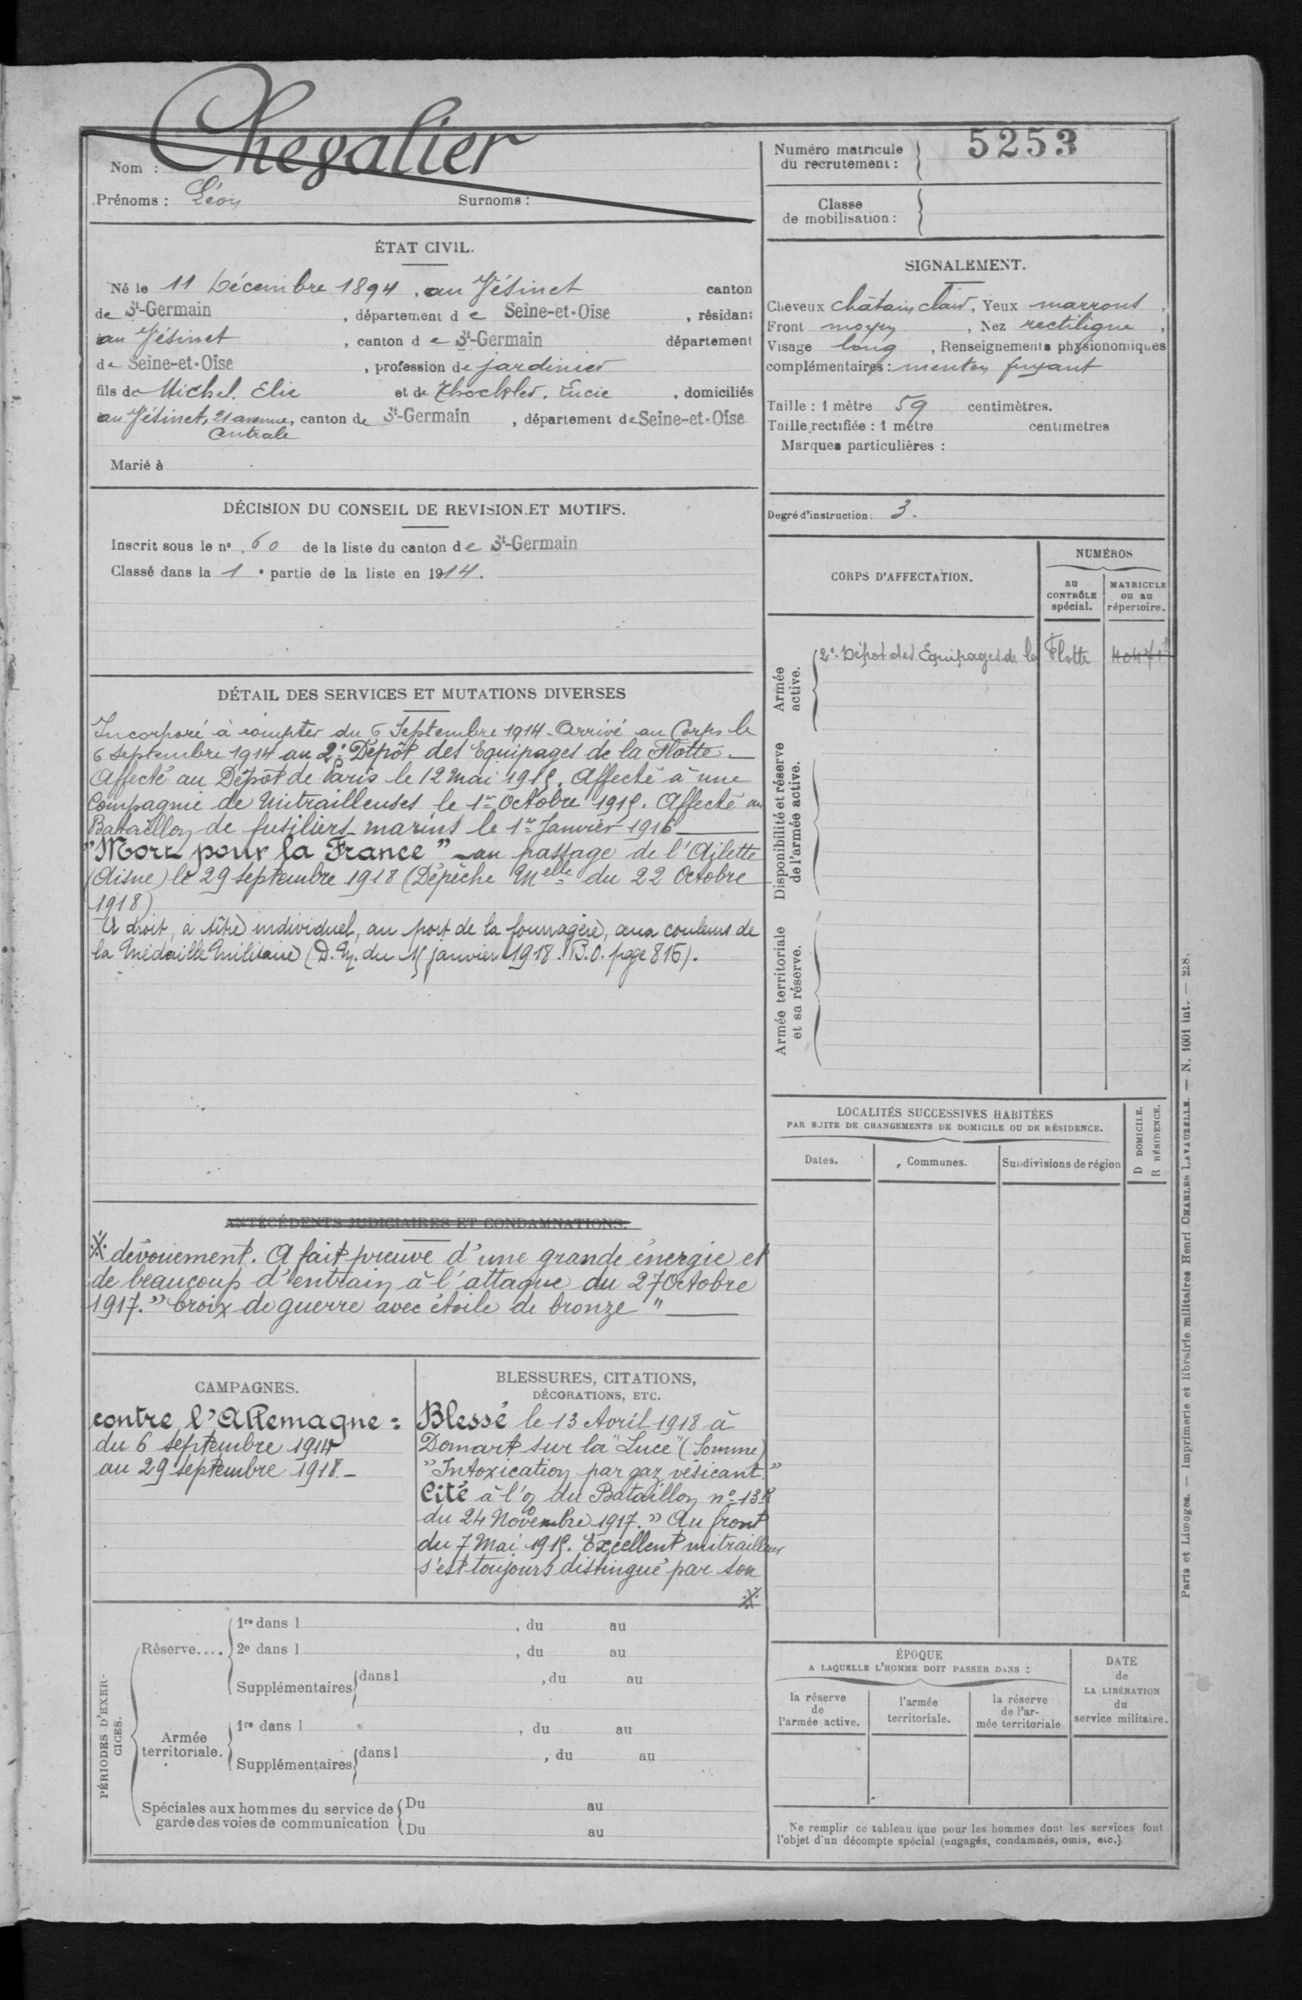 Nom : Chegalier
Prénoms : Léon Surnoms :
Numéro matricule du recrutement : 5253
Classe de mobilisation :
ÉTAT CIVIL.
Né le 11 Décembre 1894, au Vésinet canton
de St-Germain, département de Seine-et-Oise, résidant
au Vésinet, canton de St-Germain département
de Seine-et-Oise, profession de jardinier
fils de Michel Elie et de Lucie, domiciliés
au Vésinet, 21 avenue Centrale, canton de St-Germain, département de Seine-et-Oise
Marié à
SIGNALEMENT.
Cheveux châtain clair, Yeux marrons,
Front moyen, Nez rectiligne,
Visage long, Renseignements physionomiques
complémentaires : menton fuyant
Taille : 1 mètre 59 centimètres.
Taille rectifiée : 1 mètre centimètres
Marques particulières :
Degré d'instruction : 3.
DÉCISION DU CONSEIL DE REVISION ET MOTIFS.
Inscrit sous le no 60 de la liste du canton de St-Germain
Classé dans la 1e partie de la liste en 1914.
DÉTAIL DES SERVICES ET MUTATIONS DIVERSES
Incorporé à compter du 6 Septembre 1914. Arrivé au Corps le
6 septembre 1914 au 2e Dépôt des Equipages de la Flotte —
Affecté au Dépôt de Paris le 12 Mai 1915. Affecté à une
Compagnie de Mitrailleuses le 1er Octobre 1915. Affecté au
Bataillon de fusiliers marins le 1er Janvier 1916
"Mort pour la France" — au passage de l'Ailette
(Aisne) le 29 septembre 1918 (Dépêche Melle du 22 Octobre
1918)
A droit, à titre individuel, au port de la fourragère, aux couleurs de
la Médaille Militaire (D. M. du 15 janvier 1918. B.O. page 816).
CORPS D'AFFECTATION.
NUMÉROS
au CONTRÔLE spécial.
MATRICULE ou au répertoire.
Armée active.
2e Dépôt des Equipages de la Flotte
Disponibilité et réserve de l'armée active.
Armée territoriale et sa réserve.
LOCALITÉS SUCCESSIVES HABITÉES
PAR SUITE DE CHANGEMENTS DE DOMICILE OU DE RÉSIDENCE.
Dates.
Communes.
Subdivisions de région
D DOMICILE.
R RÉSIDENCE.
ANTÉCÉDENTS JUDICIAIRES ET CONDAMNATIONS.
※ dévouement. A fait preuve d'une grande énergie et
de beaucoup d'entrain à l'attaque du 27 Octobre
1917." Croix de guerre avec étoile de bronze "
CAMPAGNES.
contre l'Allemagne :
du 6 septembre 1914
au 29 septembre 1918 —
BLESSURES, CITATIONS,
DÉCORATIONS, ETC.
Blessé le 13 Avril 1918 à
Domart sur la "Luce" (Somme)
"Intoxication par gaz vésicant."
Cité à l'o du Bataillon no
du 24 Novembre 1917. " Au front
du 7 Mai 1915. Excellent mitrailleur
s'est toujours distingué par son
※
PÉRIODES D'EXERCICES.
Réserve....
1re dans l , du au
2e dans l , du au
Supplémentaires dans l , du au
Armée territoriale.
1re dans l , du au
Supplémentaires dans l , du au
Spéciales aux hommes du service de
garde des voies de communication
Du au
Du au
ÉPOQUE
A LAQUELLE L'HOMME DOIT PASSER DANS :
la réserve de l'armée active.
l'armée territoriale.
la réserve de l'armée territoriale
DATE de LA LIBÉRATION du service militaire.
Ne remplir ce tableau que pour les hommes dont les services font
l'objet d'un décompte spécial (engagés, condamnés, omis, etc.).
Paris et Limoges. — Imprimerie et librairie militaires Henri CHARLES LAVAUZELLE. — N. 1001 int. — 228.